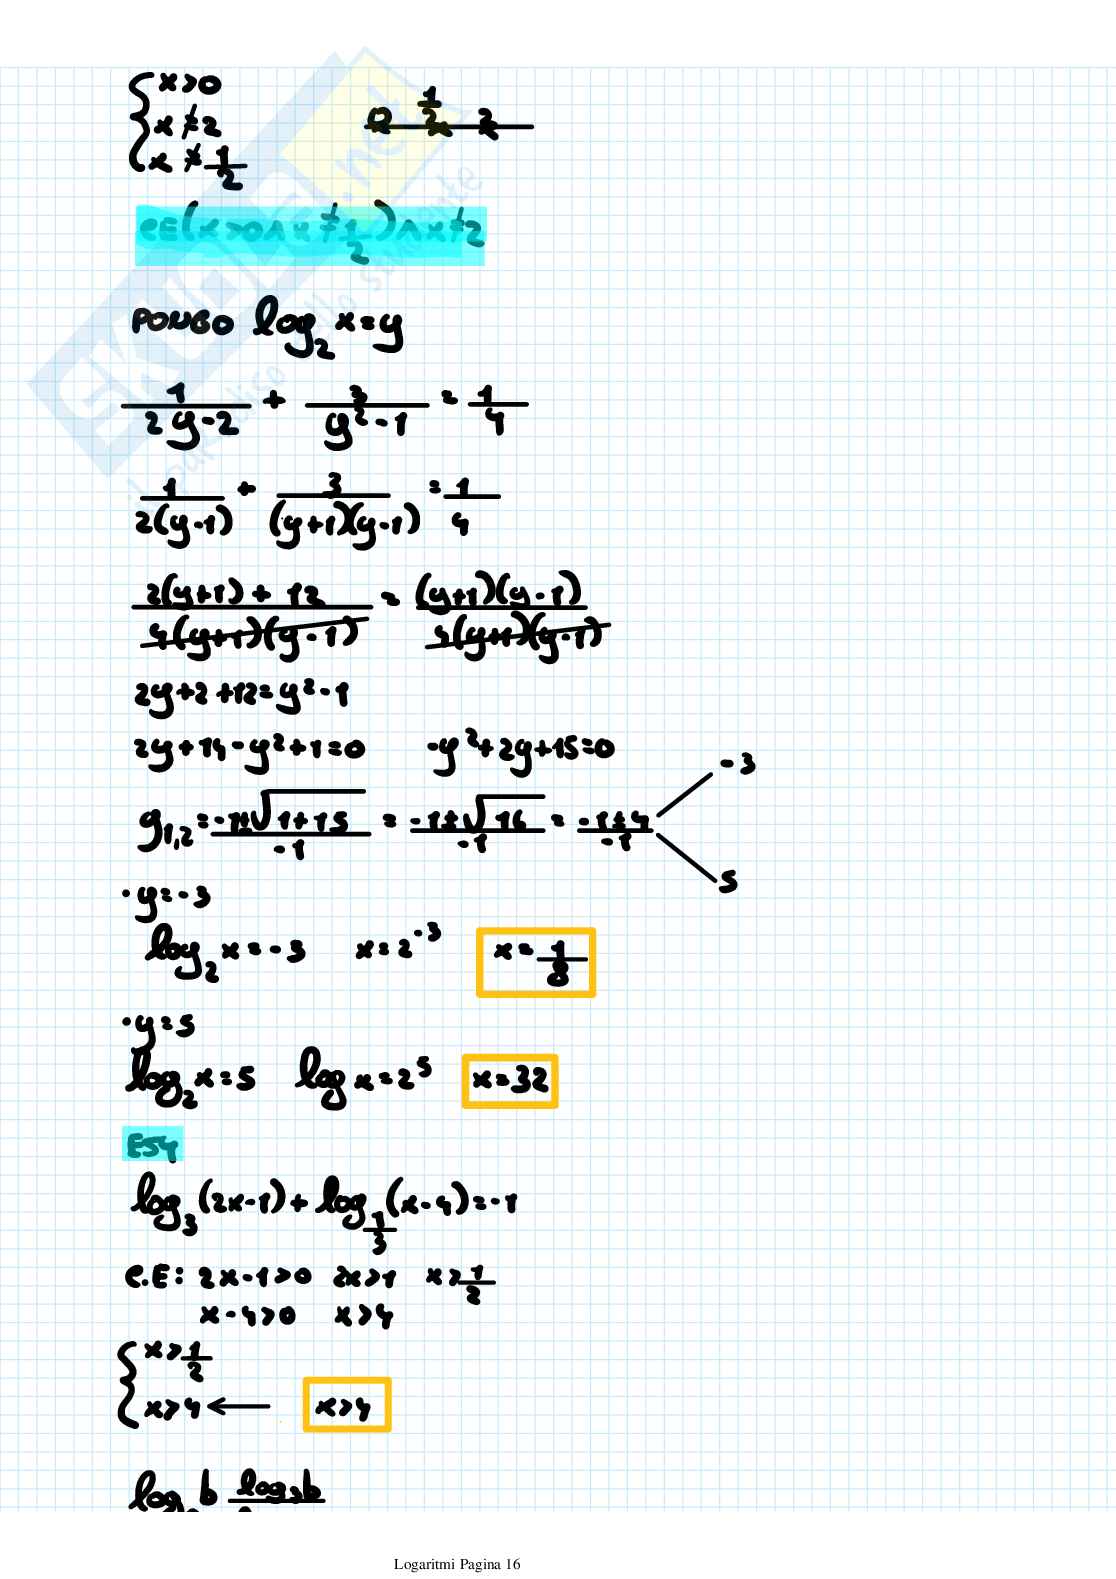 { x>0
x≠2
x≠1/2
0 1/2 2
CE (x>0 ∧ x≠1/2) ∧ x≠2
PONGO log₂ x=y
1/(2y-2) + 3/(y²-1) = 1/4
1/(2(y-1)) + 3/((y+1)(y-1)) = 1/4
(2(y+1)+12)/(4(y+1)(y-1)) = ((y+1)(y-1))/(4(y+1)(y-1))
2y+2+12=y²-1
2y+14-y²+1=0 -y²+2y+15=0
y₁,₂ = (-1±√(1+15))/(-1) = (-1±√16)/(-1) = (-1±4)/(-1) -3
5
·y=-3
log₂ x=-3 x=2⁻³ x=1/8
·y=5
log₂ x=5 log x=2⁵ x=32
ES4
log₃(2x-1)+log_1/3(x-4)=-1
C.E: 2x-1>0 2x>1 x>1/2
x-4>0 x>4
{ x>1/2
x>4 ← x>4
Logaritmi Pagina 16